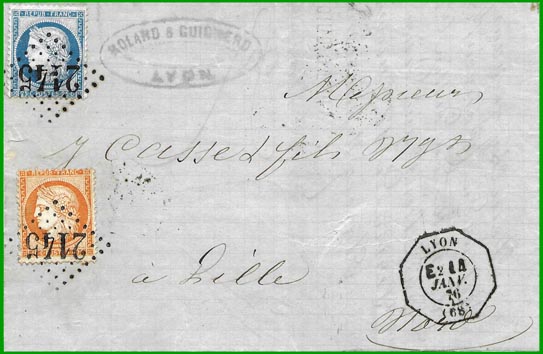 REPUB. FRANC.
2145
ROLAND & GUIGNARD
LYON
Messieurs
J Casse & fils Ngts
REPUB. FRANC.
2145
à Lille
Nord
LYON
E2 1A
JANV.
76
(68)